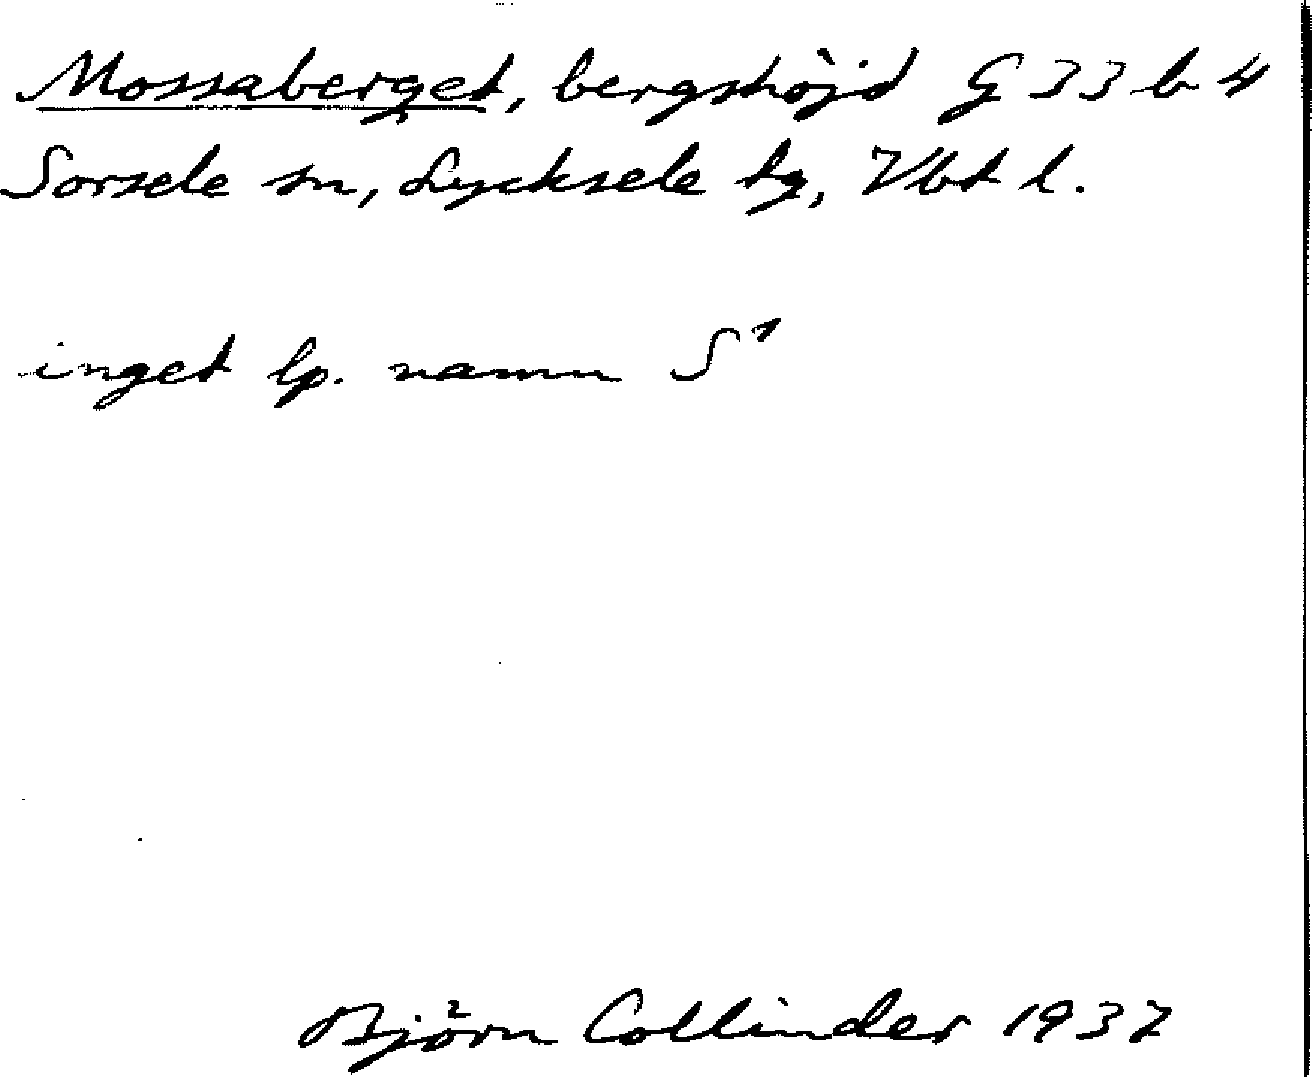 Mossaberget, bergshöjd G 33 b 4
Sorsele sn, Lycksele tg, Vbt l.
inget lp. namn S¹
Björn Collinder 1937